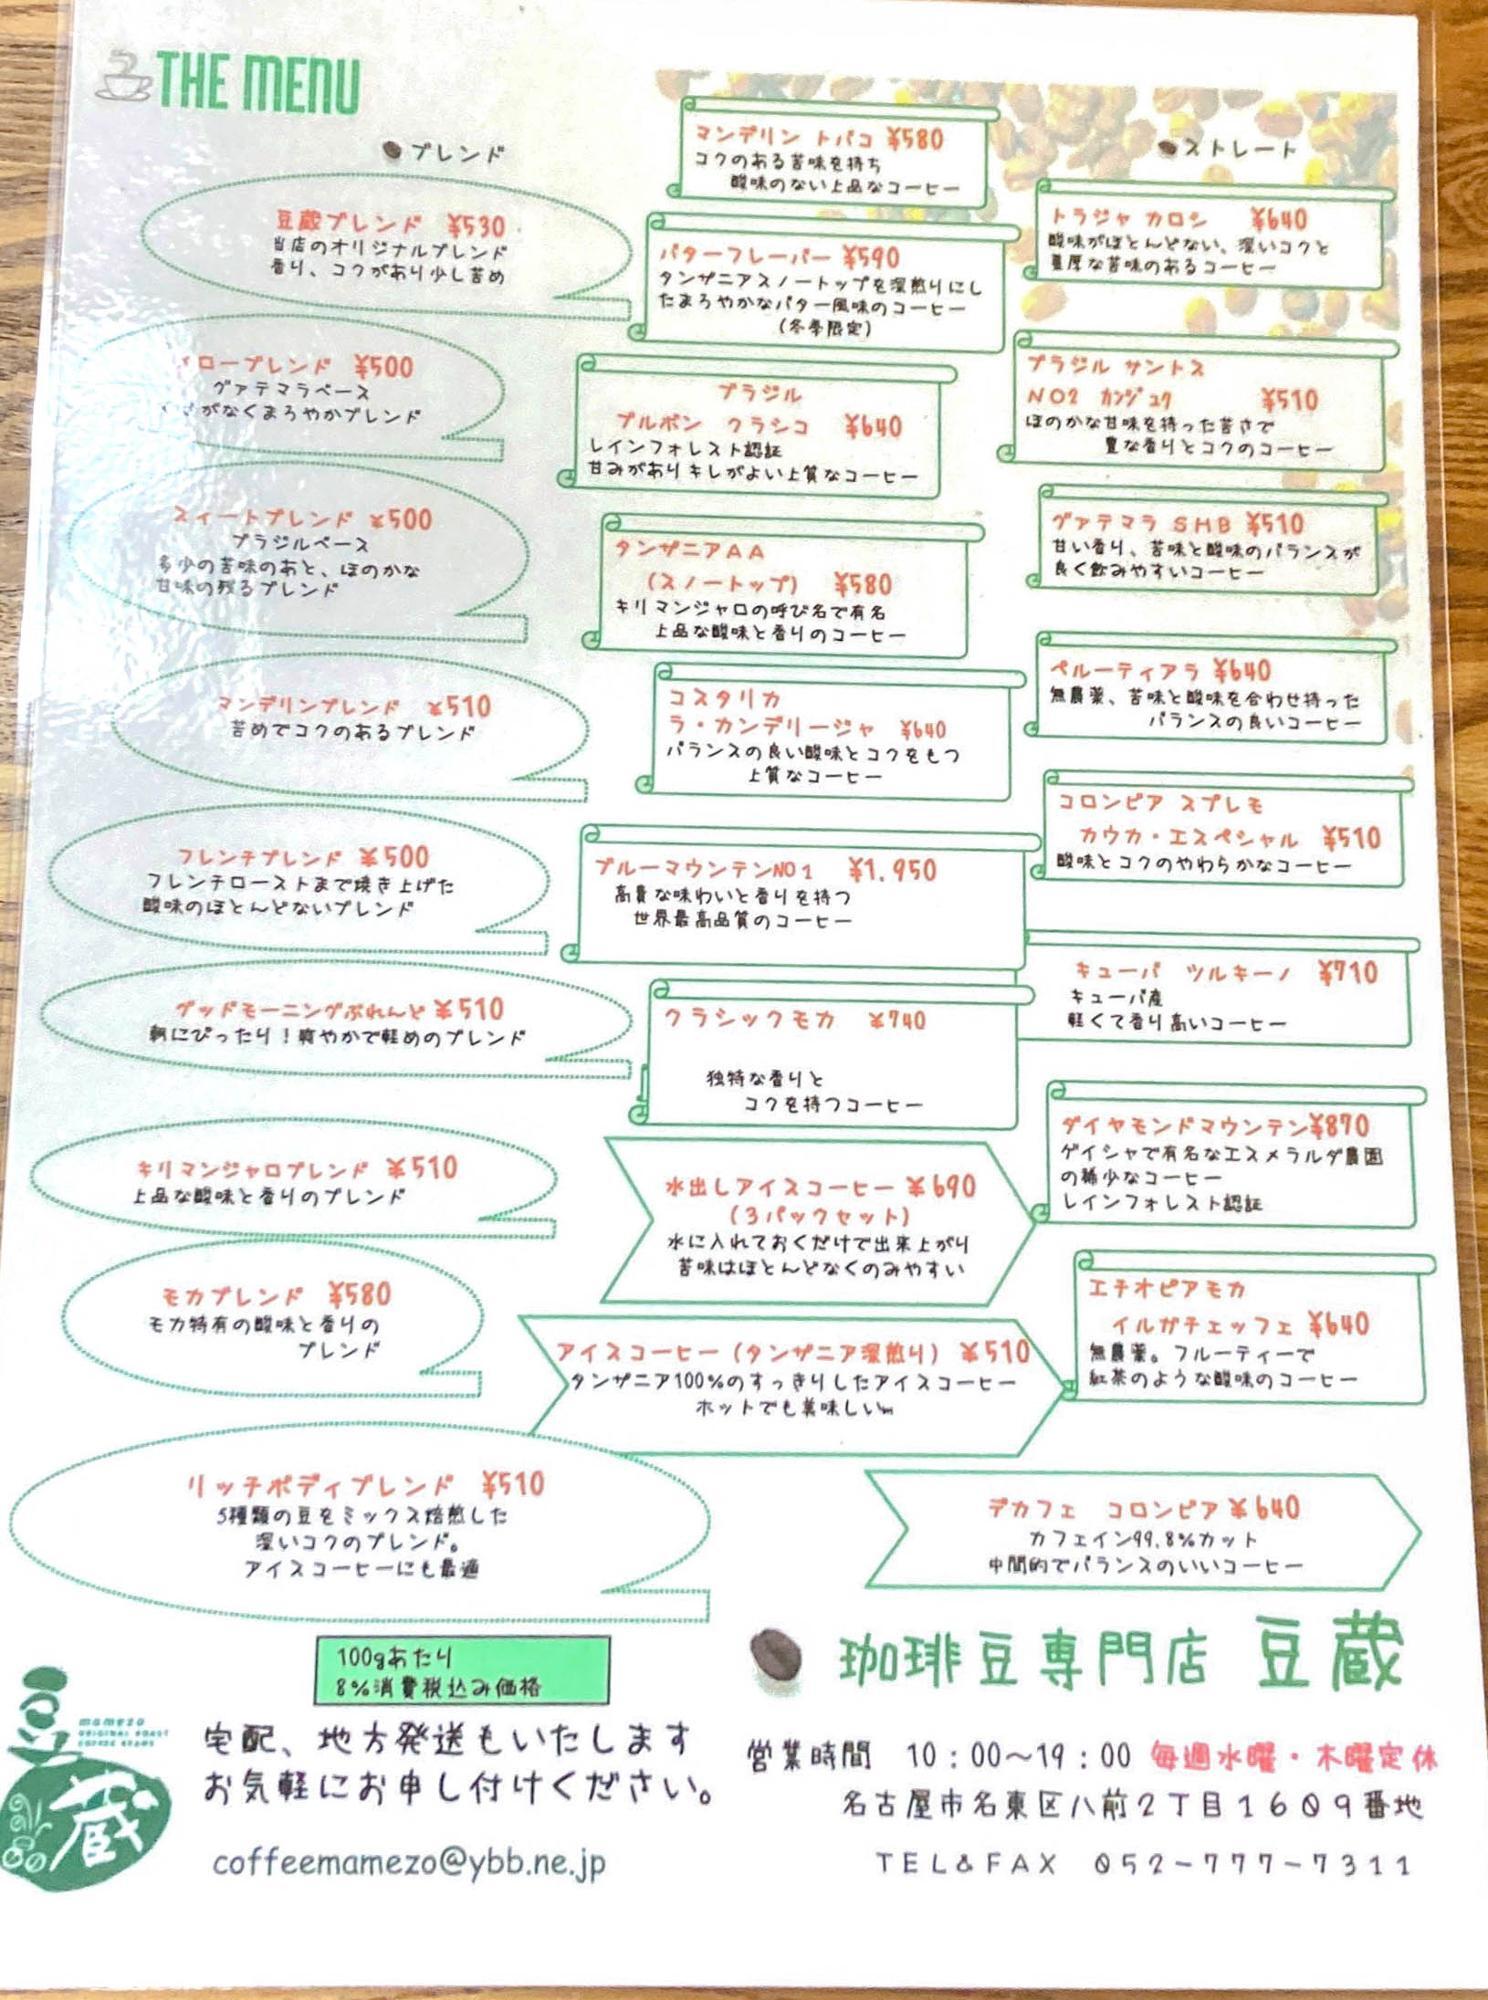 THE MENU
ブレンド
豆蔵ブレンド ¥530
当店のオリジナルブレンド
香り、コクがあり少し苦め
ローブレンド ¥500
グァテマラベース
がなくまろやかブレンド
スィートブレンド ¥500
ブラジルベース
多少の苦味のあと、ほのかな
甘味の残るブレンド
マンデリンブレンド ¥510
苦めでコクのあるブレンド
フレンチブレンド ¥500
フレンチローストまで焼き上げた
酸味のほとんどないブレンド
グッドモーニングぶれんど ¥510
朝にぴったり！爽やかで軽めのブレンド
キリマンジャロブレンド ¥510
上品な酸味と香りのブレンド
モカブレンド ¥580
モカ特有の酸味と香りの
ブレンド
リッチボディブレンド ¥510
5種類の豆をミックス焙煎した
深いコクのブレンド。
アイスコーヒーにも最適
マンデリン トバコ ¥580
コクのある苦味を持ち
酸味のない上品なコーヒー
バターフレーバー ¥590
タンザニアスノートップを深煎りにし
たまろやかなバター風味のコーヒー
(冬季限定)
ブラジル
ブルボン クラシコ ¥640
レインフォレスト認証
甘みがありキレがよい上質なコーヒー
タンザニアAA
(スノートップ) ¥580
キリマンジャロの呼び名で有名
上品な酸味と香りのコーヒー
コスタリカ
ラ・カンデリージャ ¥640
バランスの良い酸味とコクをもつ
上質なコーヒー
ブルーマウンテンNO1 ¥1,950
高貴な味わいと香りを持つ
世界最高品質のコーヒー
クラシックモカ ¥740
独特な香りと
コクを持つコーヒー
水出しアイスコーヒー ¥690
(3パックセット)
水に入れておくだけで出来上がり
苦味はほとんどなくのみやすい
アイスコーヒー(タンザニア深煎り) ¥510
タンザニア100%のすっきりしたアイスコーヒー
ホットでも美味しい
ストレート
トラジャ カロシ ¥640
酸味がほとんどない、深いコクと
重厚な苦味のあるコーヒー
ブラジル サントス
NO2 カンジュク ¥510
ほのかな甘味を持った苦さで
豊な香りとコクのコーヒー
グァテマラ SHB ¥510
甘い香り、苦味と酸味のバランスが
良く飲みやすいコーヒー
ペルーティアラ ¥640
無農薬、苦味と酸味を合わせ持った
バランスの良いコーヒー
コロンビア スプレモ
カウカ・エスペシャル ¥510
酸味とコクのやわらかなコーヒー
キューバ ツルキーノ ¥710
キューバ産
軽くて香り高いコーヒー
ダイヤモンドマウンテン¥870
ゲイシャで有名なエスメラルダ農園
の稀少なコーヒー
レインフォレスト認証
エチオピアモカ
イルガチェッフェ ¥640
無農薬。フルーティーで
紅茶のような酸味のコーヒー
デカフェ コロンビア ¥640
カフェイン99.8%カット
中間的でバランスのいいコーヒー
100gあたり
8%消費税込み価格
宅配、地方発送もいたします
お気軽にお申し付けください。
coffeemamezo@ybb.ne.jp
豆蔵
mamezo
ORIGINAL ROAST
COFFEE BEANS
珈琲豆専門店 豆蔵
営業時間 10：00～19：00 毎週水曜・木曜定休
名古屋市名東区八前2丁目1609番地
TEL&FAX 052-777-7311